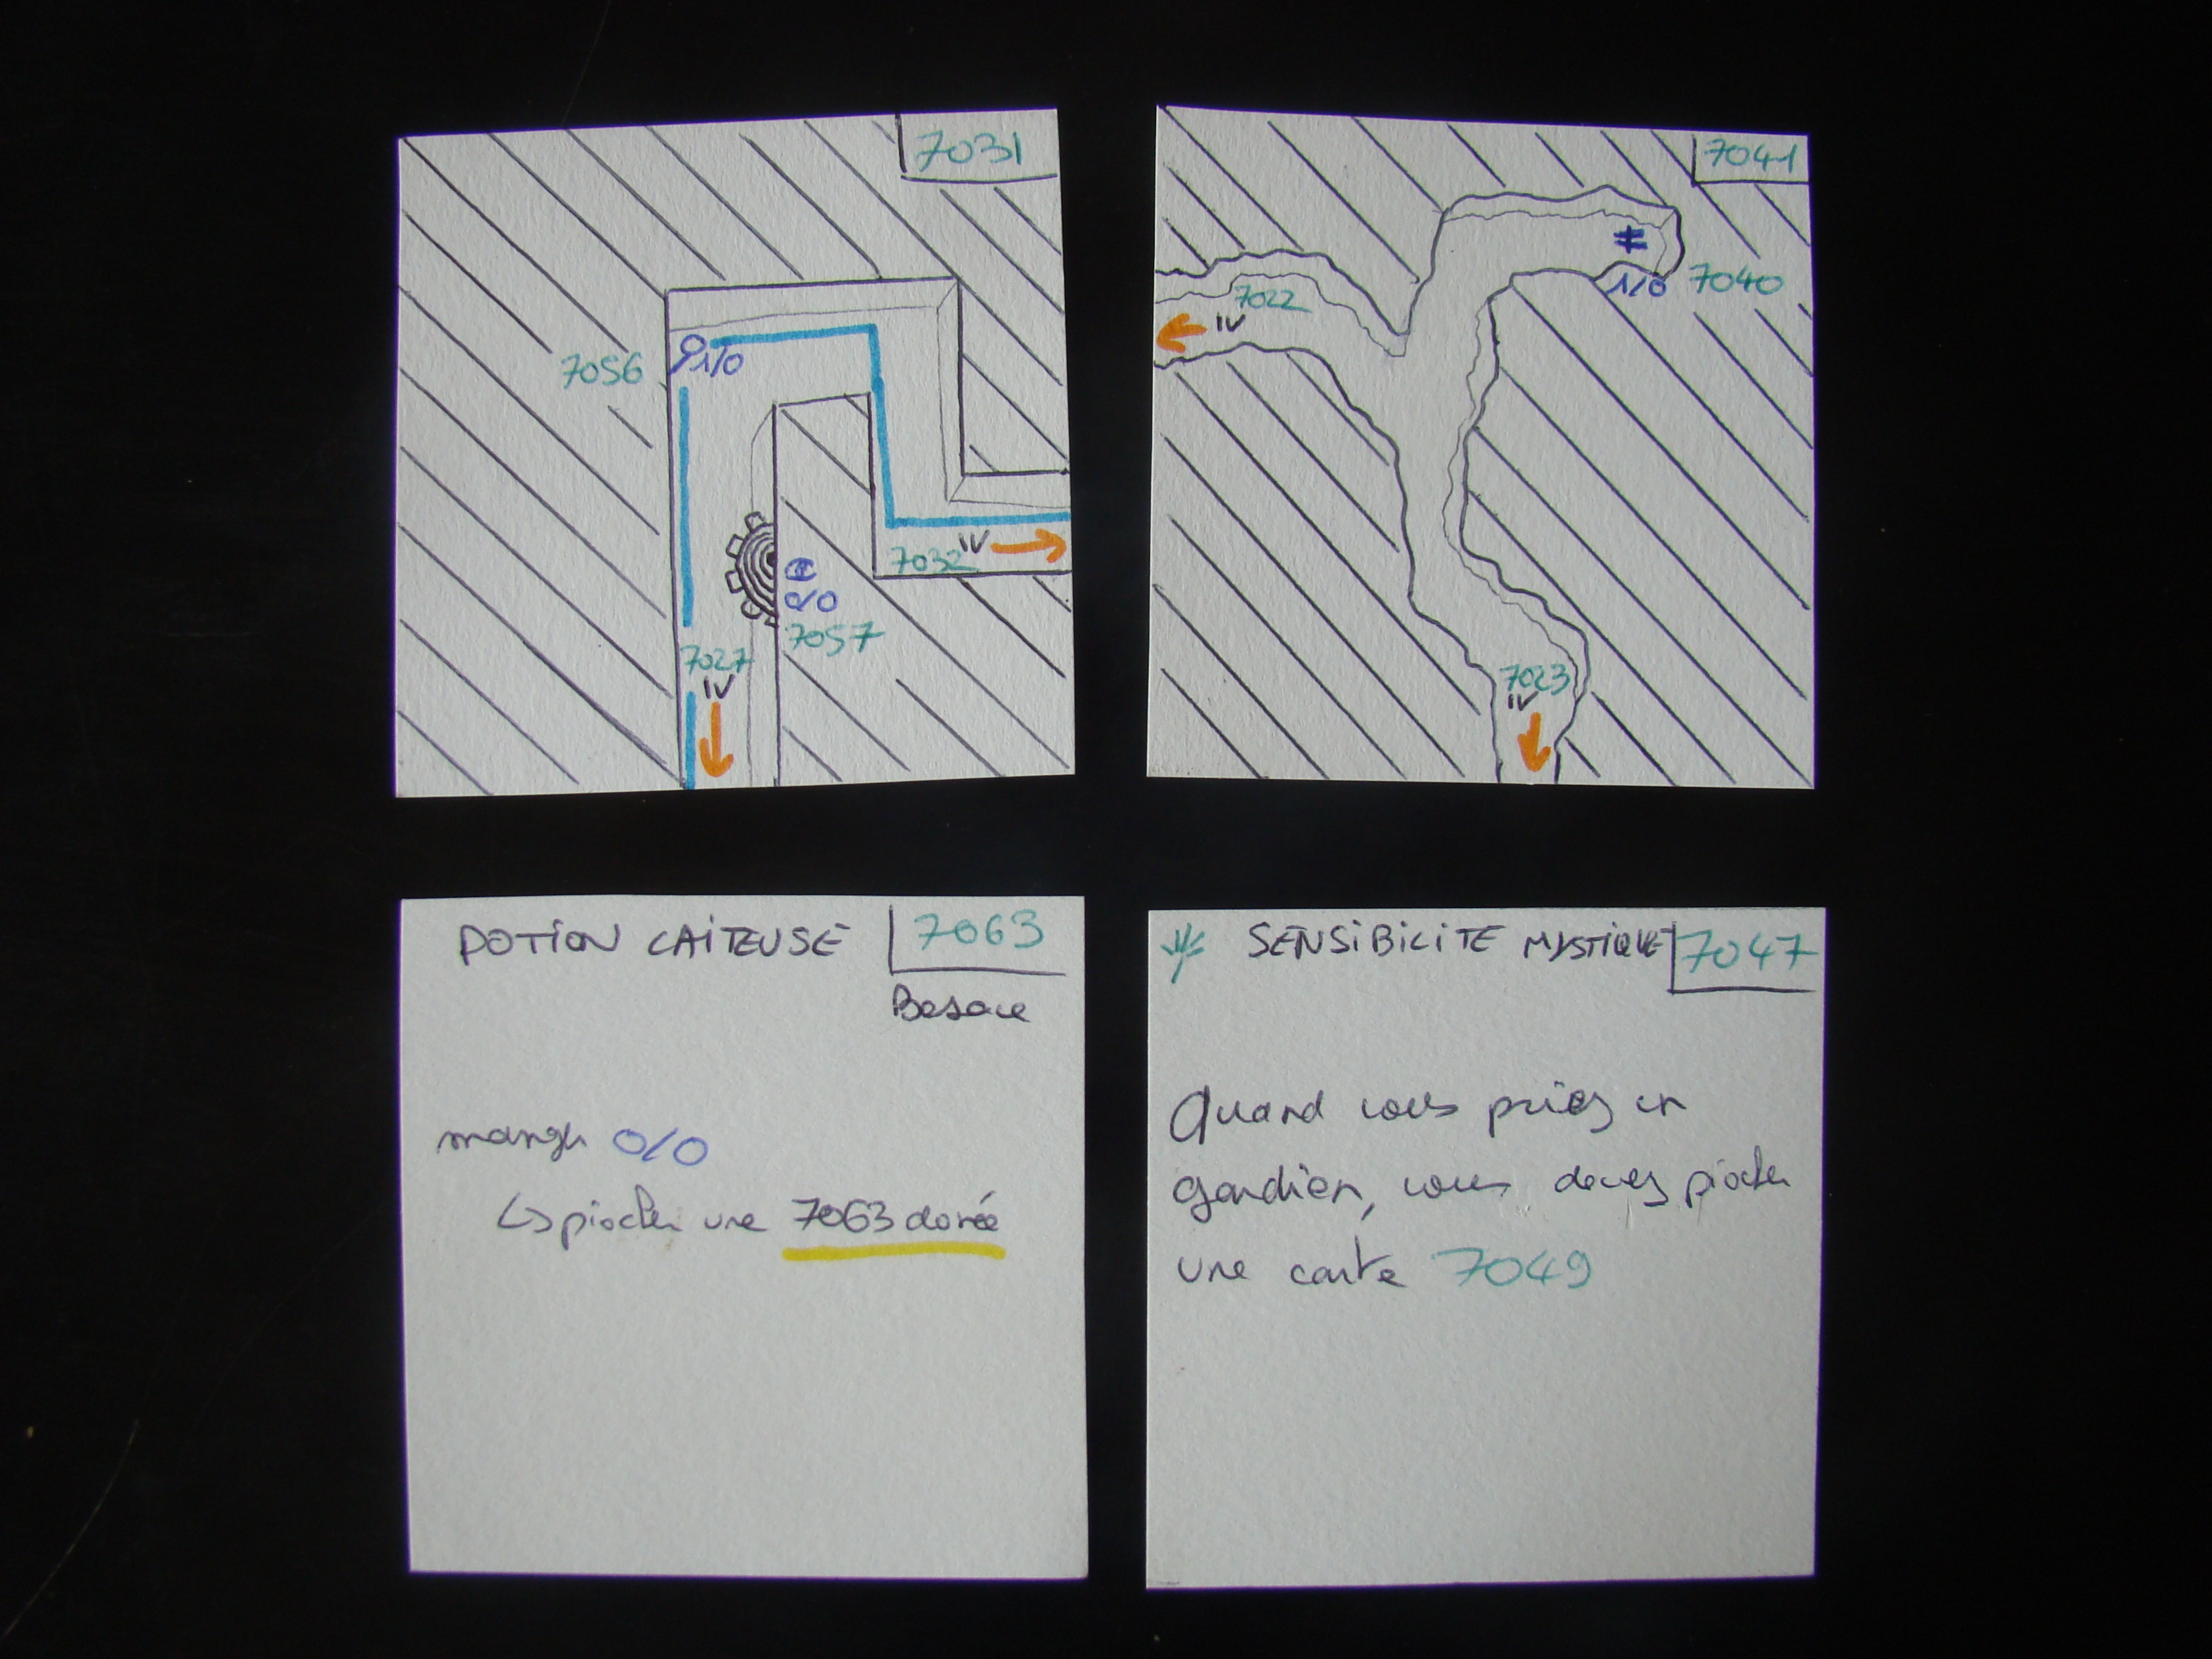 7031
7056
1/0
7032
IV
0/0
7057
7027
IV
7041
7022
IV
1/0
7040
7023
IV
POTION LAITEUSE
7063
Besace
manger 0/0
↳ piocher une 7063 dorée
SENSIBILITE MYSTIQUE
7047
Quand vous priez un
gardien, vous devez piocher
une carte 7049